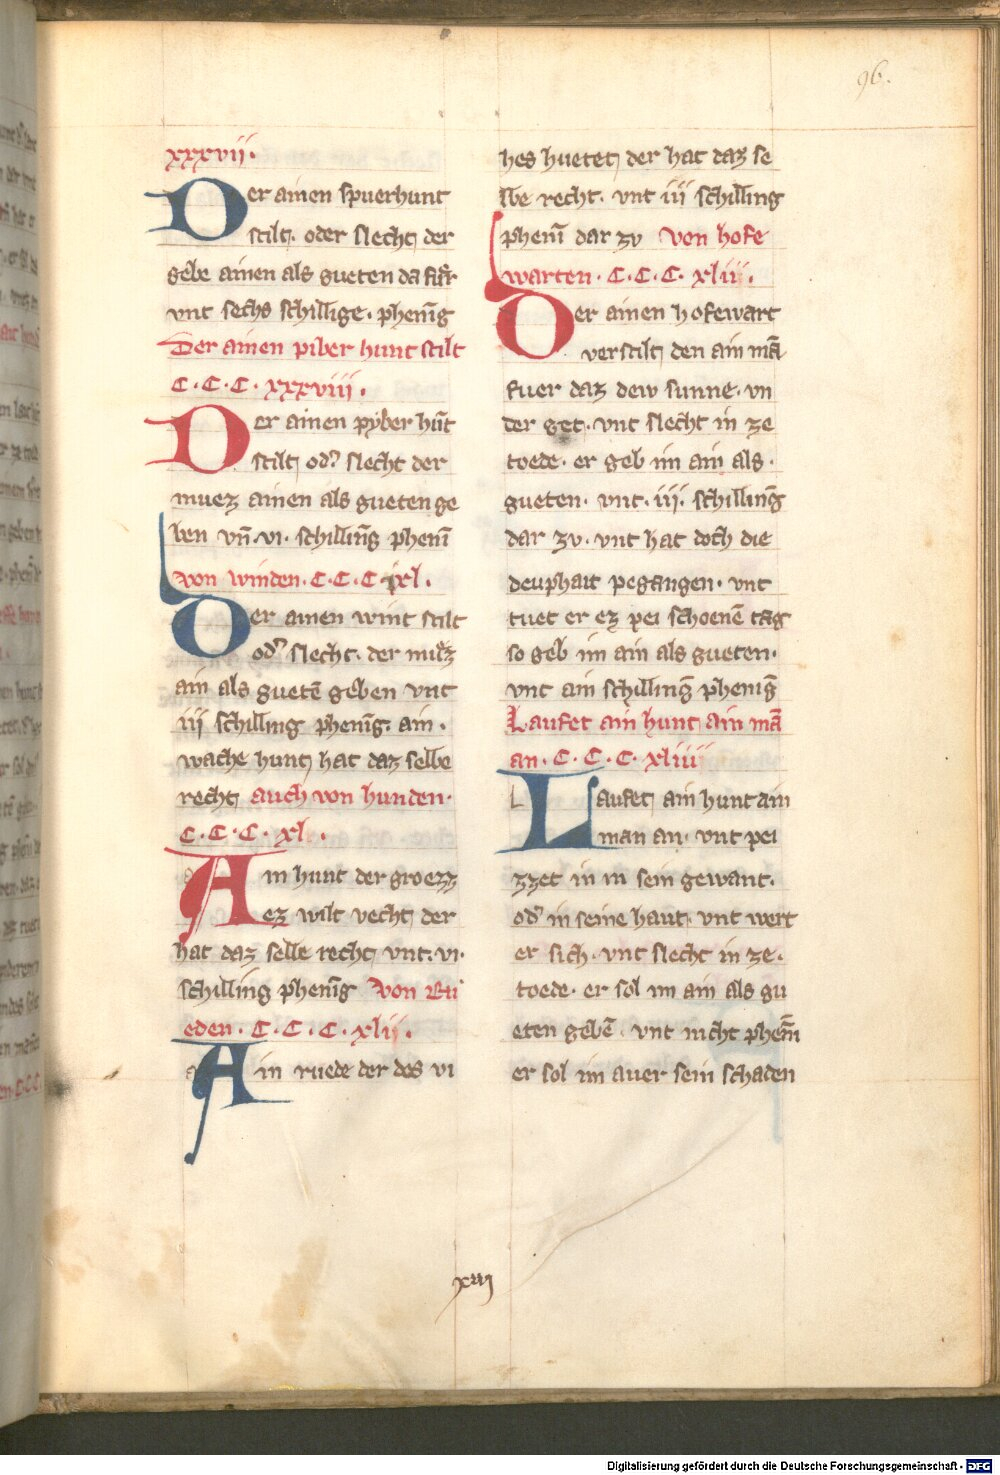 96.
xxxvii.
Der ainen spuerhunt
stilt. oder slecht der
gebe ainen als gueten da fuͤr
vnt sechs schillige. phenīg
Der ainen piber hunt stilt
C. C. C. xxxviii.
Der ainen pyber hūt
stilt od' slecht der
muez ainen als gueten ge
ben vn̄. vi. schillīng phenī
von winden. C. C. C. ixl.
Der ainen wint stilt
od' slecht. der muͤz
ain als guetē geben vnt
iii schilling phenīg. ain.
wache hunt hat daz selbe
recht auch von hunden.
C. C. C. xl.
Ain hunt der groezz
ez wilt vecht der
hat daz selbe recht vnt. vi.
schilling phenīg von Ru
eden. C. C. C. xlii.
Ain ruede der des vi
hes huetet der hat daz se
lbe recht. vnt iii schilling
phenī dar zv von hofe
warten. C. C. C. xliii.
Der ainen hofewart
verstilt den ain mā
fuer daz dew sunne. vn
der get. vnt slecht in ze
toede. er geb im ain als.
gueten. vnt. iii. schillīng
dar zv. vnt hat doch die
deuphait pegangen. vnt
tuet er ez pei schoenē tag
so geb im ain als gueten.
vnt ain schilling phenig
Laufet ain hunt ain mā
an. C. C. C. xliiii
Laufet ain hunt ain
man an. vnt pei
zzet in in sein gewant.
od' in seine haut. vnt wert
er sich. vnt slecht in ze.
toede. er sol im ain als gu
eten gebē. vnt nicht phenī
er sol im auer sein schaden
xiii
Digitalisierung gefördert durch die Deutsche Forschungsgemeinschaft - DFG